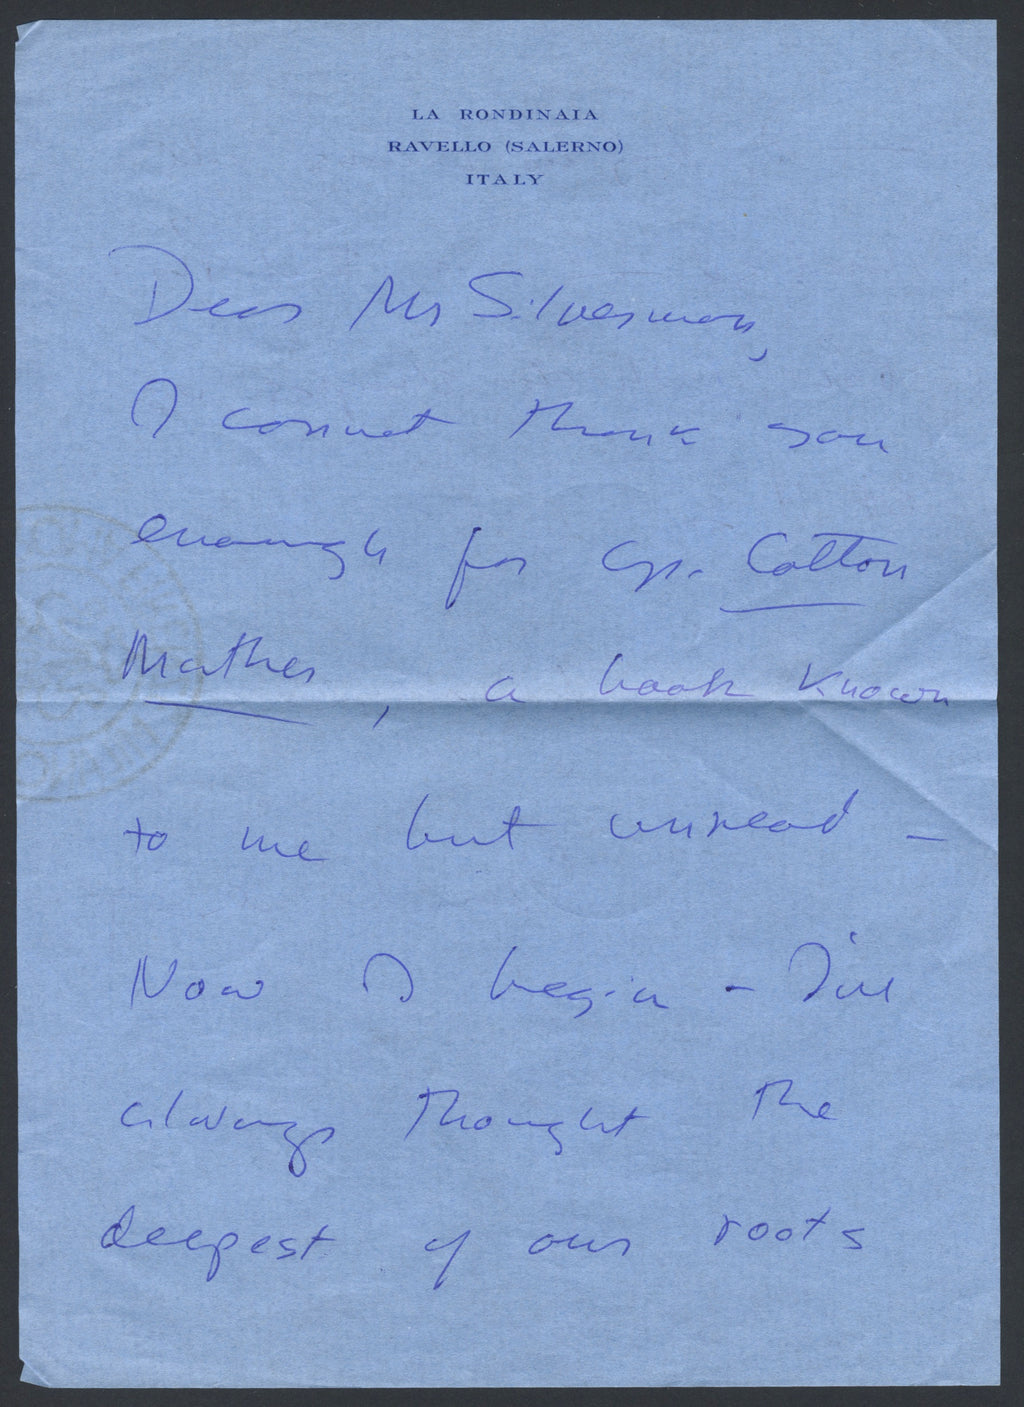 LA RONDINAIA
RAVELLO (SALERNO)
ITALY
Dear Mr Silverman,
I cannot thank you
enough for Cotton
Mather, a book known
to me but unread –
Now I begin – I've
always thought the
deepest of our roots